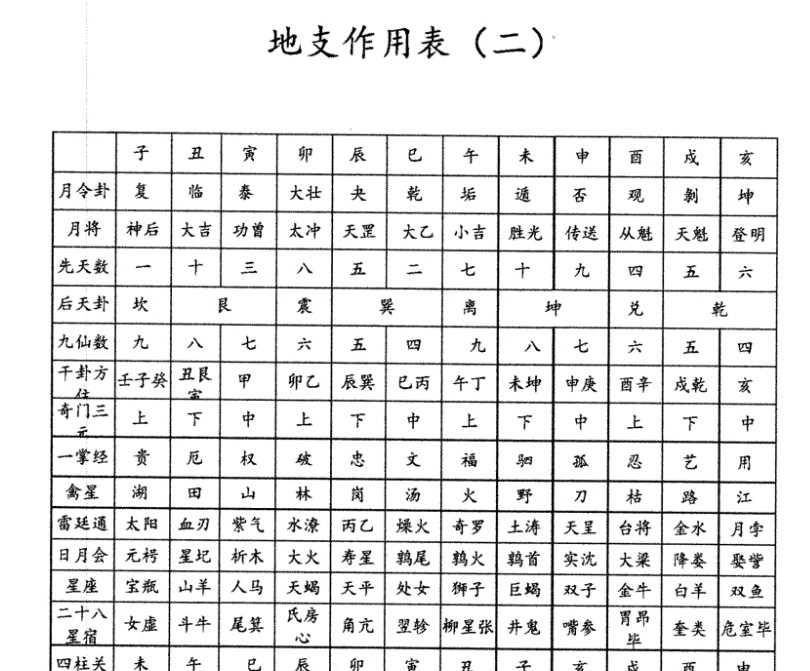 地支作用表（二）
子 丑 寅 卯 辰 巳 午 未 申 酉 戌 亥
月令卦 复 临 泰 大壮 夬 乾 垢 遁 否 观 剝 坤
月将 神后 大吉 功曾 太冲 天罡 大乙 小吉 胜光 传送 从魁 天魁 登明
先天数 一 十 三 八 五 二 七 十 九 四 五 六
后天卦 坎 艮 震 巽 离 坤 兑 乾
九仙数 九 八 七 六 五 四 九 八 七 六 五 四
干卦方位 壬子癸 丑艮寅 甲 卯乙 辰巽 巳丙 午丁 未坤 申庚 酉辛 戌乾 亥
奇门三元 上 下 中 上 下 中 上 下 中 上 下 中
一掌经 贵 厄 权 破 忠 文 福 驷 孤 忍 艺 用
禽星 湖 田 山 林 岗 汤 火 野 刀 枯 路 江
雷廷通 太阳 血刃 紫气 水潦 丙乙 燥火 奇罗 土涛 天呈 台将 金水 月孛
日月会 元枵 星圯 析木 大火 寿星 鹑尾 鹑火 鹑首 实沈 大梁 降娄 娶訾
星座 宝瓶 山羊 人马 天蝎 天平 处女 狮子 巨蝎 双子 金牛 白羊 双鱼
二十八星宿 女虚 斗牛 尾箕 氏房心 角亢 翌轸 柳星张 井鬼 嘴参 胃昂毕 奎类 危室毕
四柱关 未 午 巳 辰 卯 寅 丑 子 亥 戌 酉 申